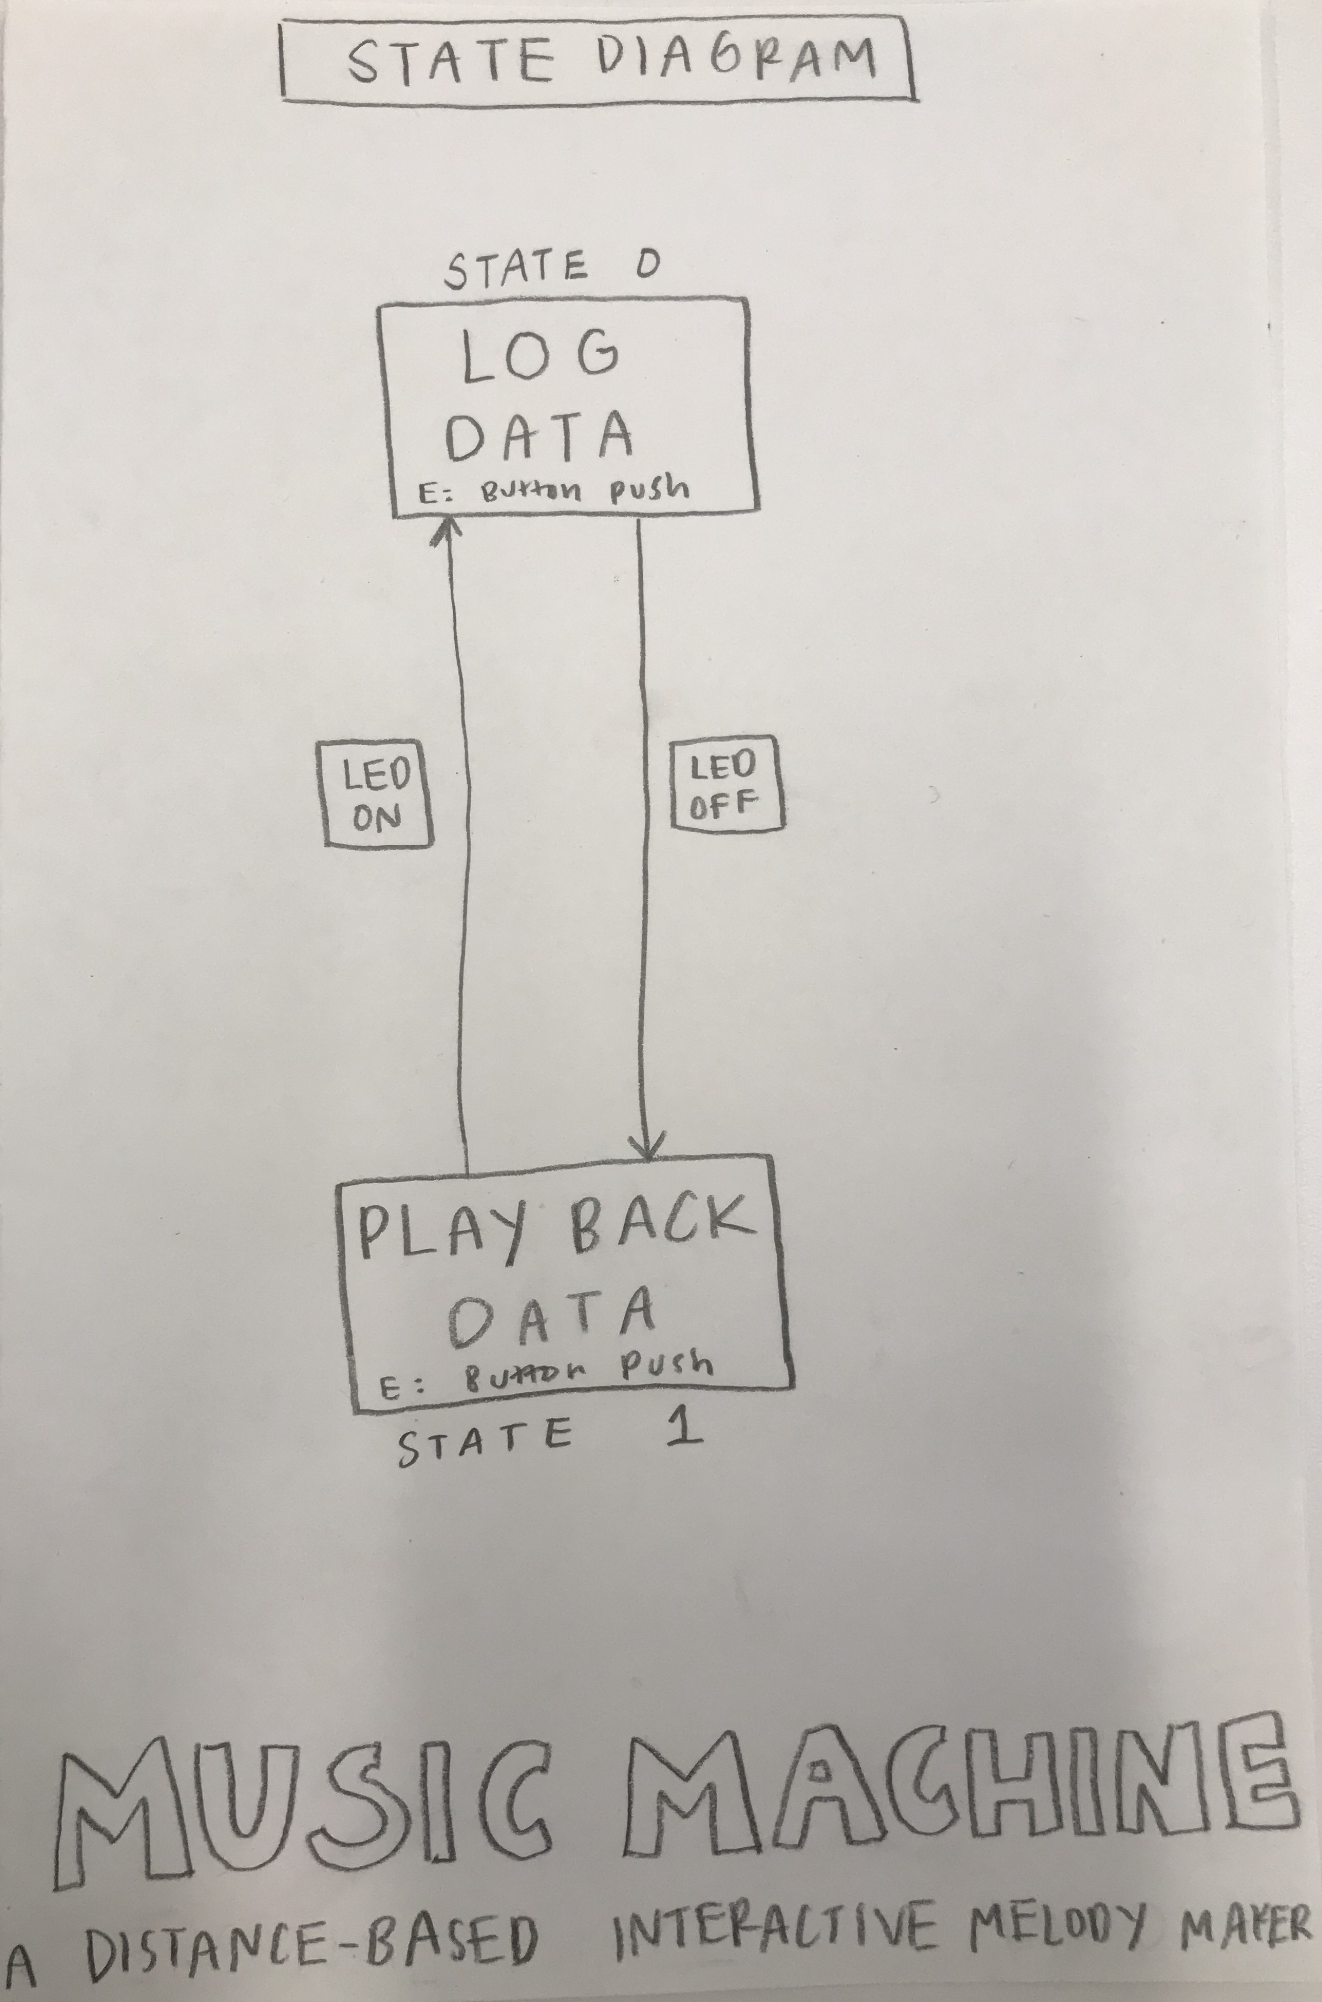 STATE DIAGRAM
STATE 0
LOG
DATA
E: Button push
LED
ON
LED
OFF
PLAY BACK
DATA
E: Button Push
STATE 1
MUSIC MACHINE
A DISTANCE-BASED INTERACTIVE MELODY MAKER